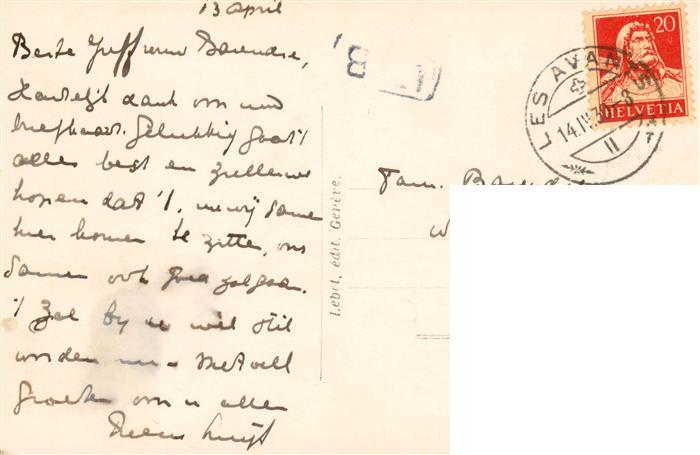 13 april
Beste Juffrouw Barendse,
Hartelijk dank om uw
briefkaart. Gelukkig gaat 't
alles best en zullen we
hopen dat 't, nu wij samen
hier komen te zitten, ons
samen ook goed zal gaan.
't Zal bij u wel stil
worden nu - Met veel
groeten om u allen
Lebet, édit. Genève.
Fam.
LES AVANTS
14.IV.30-8
II
20
HELVETIA